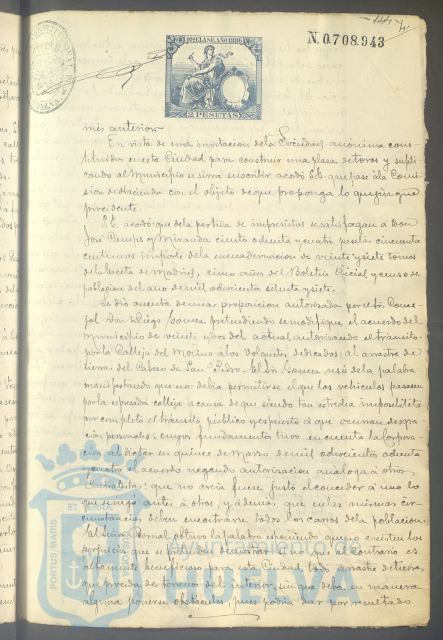 N.0.708.943
10ª CLASE. AÑO 1886
2 PESETAS
mes anterior.
En vista de una invitacion de la Sociedad anónima cons-
tituida en esta Ciudad para construir una plaza de toros y supli-
cando al Municipio se sirva suscribir acordó S.E. que pase á la Comi-
sion de Hacienda con el objeto de que proponga lo que juzgue
procedente.
S.E. acordó: que de la partida de imprevistos se satisfagan á Don
José Campos y Miranda ciento ochenta y cuatro pesetas cincuenta
centimos importe de la encuadernacion de veinte y siete tomos
de la Gaceta de Madrid, cinco años del Boletin Oficial y censo de
poblacion del año de mil ochocientos setenta y siete.
Se dió cuenta de una proposicion autorizada por el Sr. Conce-
jal Don Diego pretendiendo se modifique el acuerdo del
Municipio de veinte y dos del actual autorizando el tránsito
por la Calleja del Molino á los Volquetes, dedicados al arrastre de
tierras del Cabezo de San Pedro. El Sr. usó de la palabra
manifestando que no debia permitirse el que los vehiculos pasasen
por la espresada calleja á causa de que siendo tan estrecha imposibilita
por completo el tránsito público y espuesto á que ocurran desgra-
cias personales; cuyos fundamentos tuvo en cuenta la Corpora-
cion al dictar en quince de Marzo de mil ochocientos ochenta
y cuatro acuerdo negando autorizacion analoga á otros
Contratistas: que no creia fuese justo el conceder á uno lo
que se negó antes á otros, y ademas que en las mismas cir-
cunstancias deben encontrarse todos los carros de la poblacion.
El Señor Bernal obtuvo la palabra esponiendo que no existen los
perjuicios que se pretenden demostrar y que al contrario es
altamente beneficioso para esta Ciudad todo arrastre de tierras
que proceda de terrenos del interior, sin que deba en manera
alguna ponerse obstáculos, pues podria dar por resultado
PORTUS MARIS ET TERRAE
Ayuntamiento de
HUELVA